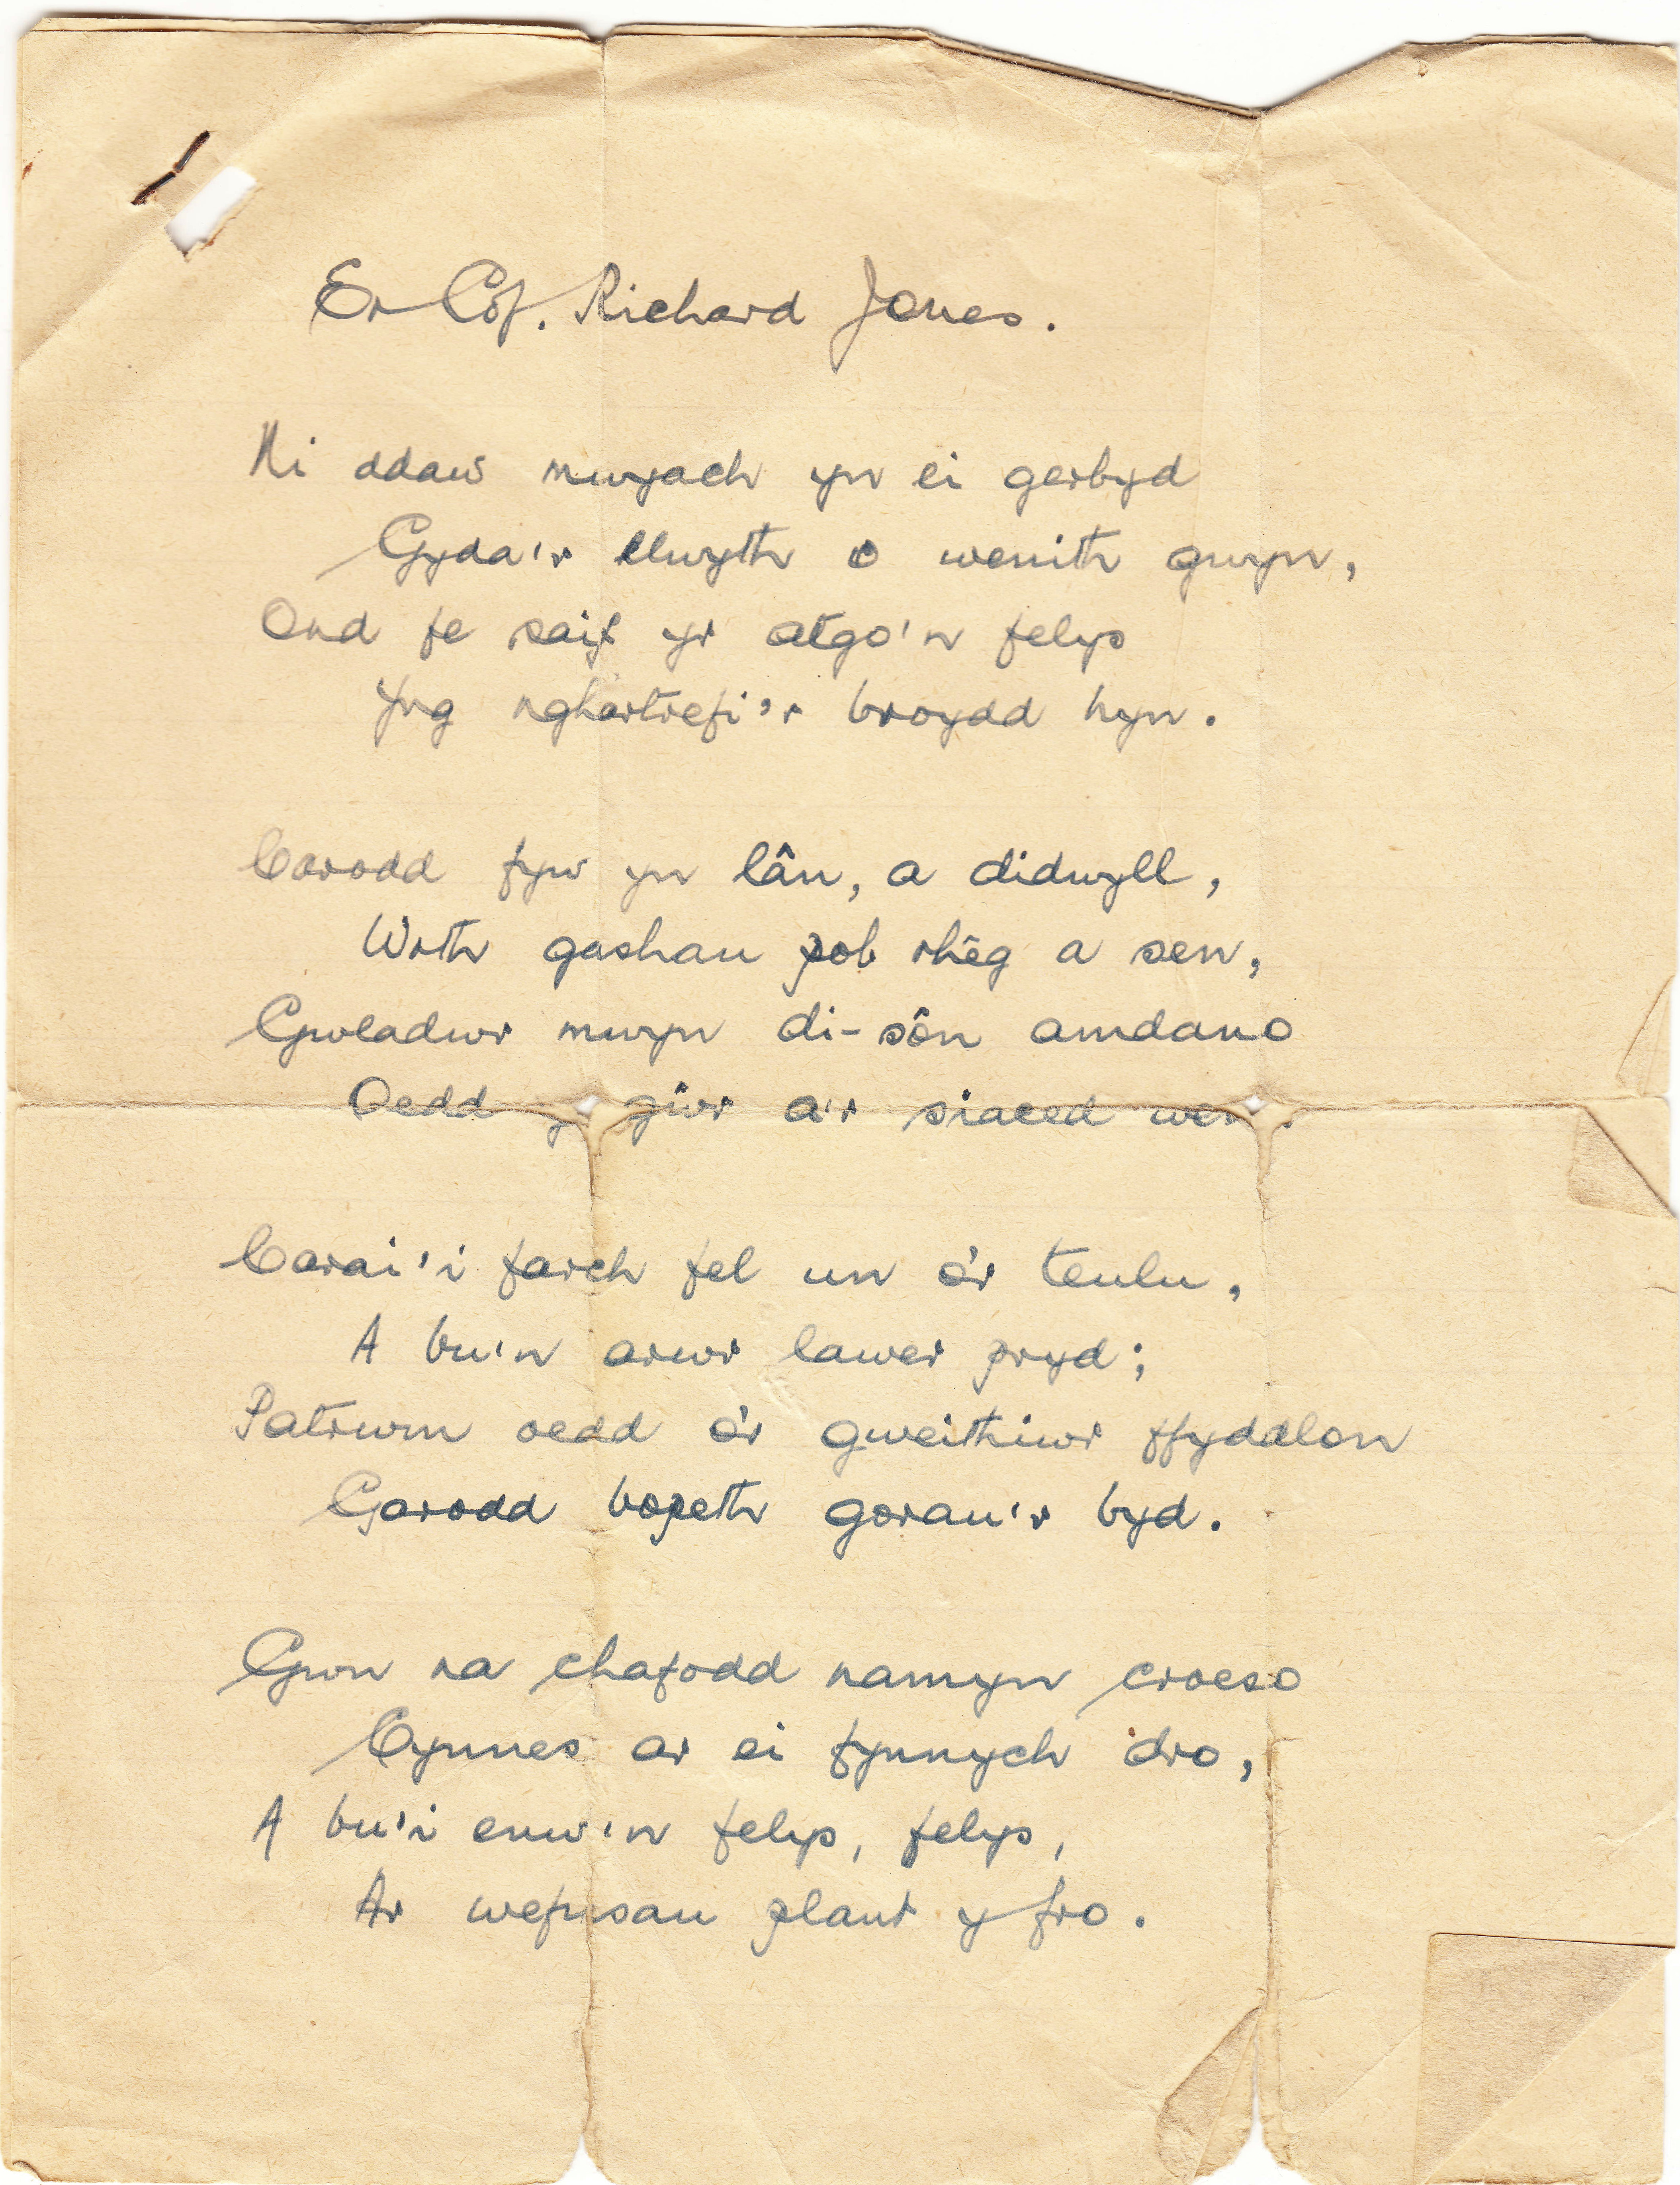 Er Cof. Richard Jones.
Ni ddaw mwyach yn ei gerbyd
Gyda'r llwyth o wenith gwyn,
Ond fe saif yr atgo'n felys
Yng nghartrefi'r broydd hyn.
Carodd fyw yn lân, a didwyll,
Wrth gashau pob rhêg a sen,
Gwladwr mwyn di-sôn amdano
Oedd y gŵr a'r siaced wen.
Carai'i farch fel un o'r teulu,
A bu'n arwr lawer pryd;
Patrwm oedd o'r gweithiwr ffyddlon
Garodd bopeth gorau'r byd.
Gwn na chafodd namyn croeso
Cynnes ar ei fynnych dro,
A bu'i enw'n felys, felys,
Ar wefusau plant y fro.